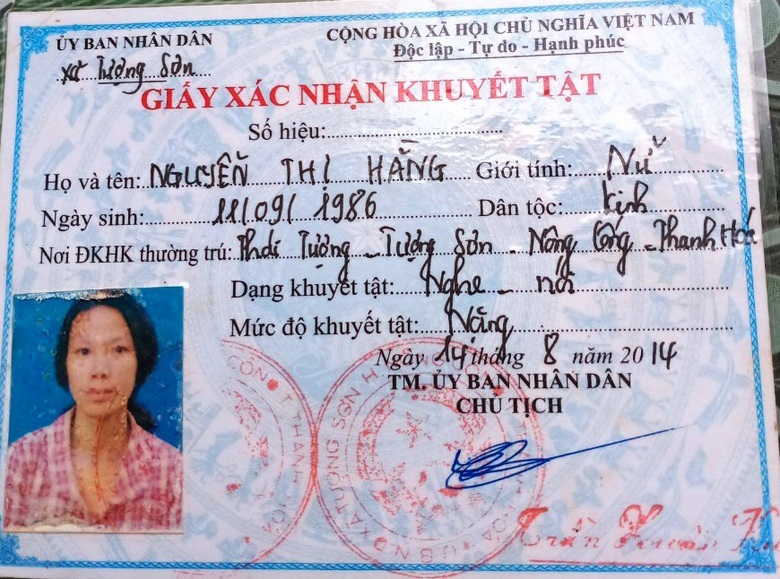 ỦY BAN NHÂN DÂN
xã Tượng Sơn
CỘNG HÒA XÃ HỘI CHỦ NGHĨA VIỆT NAM
Độc lập - Tự do - Hạnh phúc
GIẤY XÁC NHẬN KHUYẾT TẬT
Số hiệu:
Họ và tên: NGUYỄN THỊ HẰNG Giới tính: Nữ
Ngày sinh: 11/09/1986 Dân tộc: kinh
Nơi ĐKHK thường trú: Thái Tượng - Tượng Sơn - Nông Cống - Thanh Hoá
Dạng khuyết tật: Nghe - nói
Mức độ khuyết tật: Nặng
Ngày 14 tháng 8 năm 2014
TM. ỦY BAN NHÂN DÂN
CHỦ TỊCH
Trần Xuân